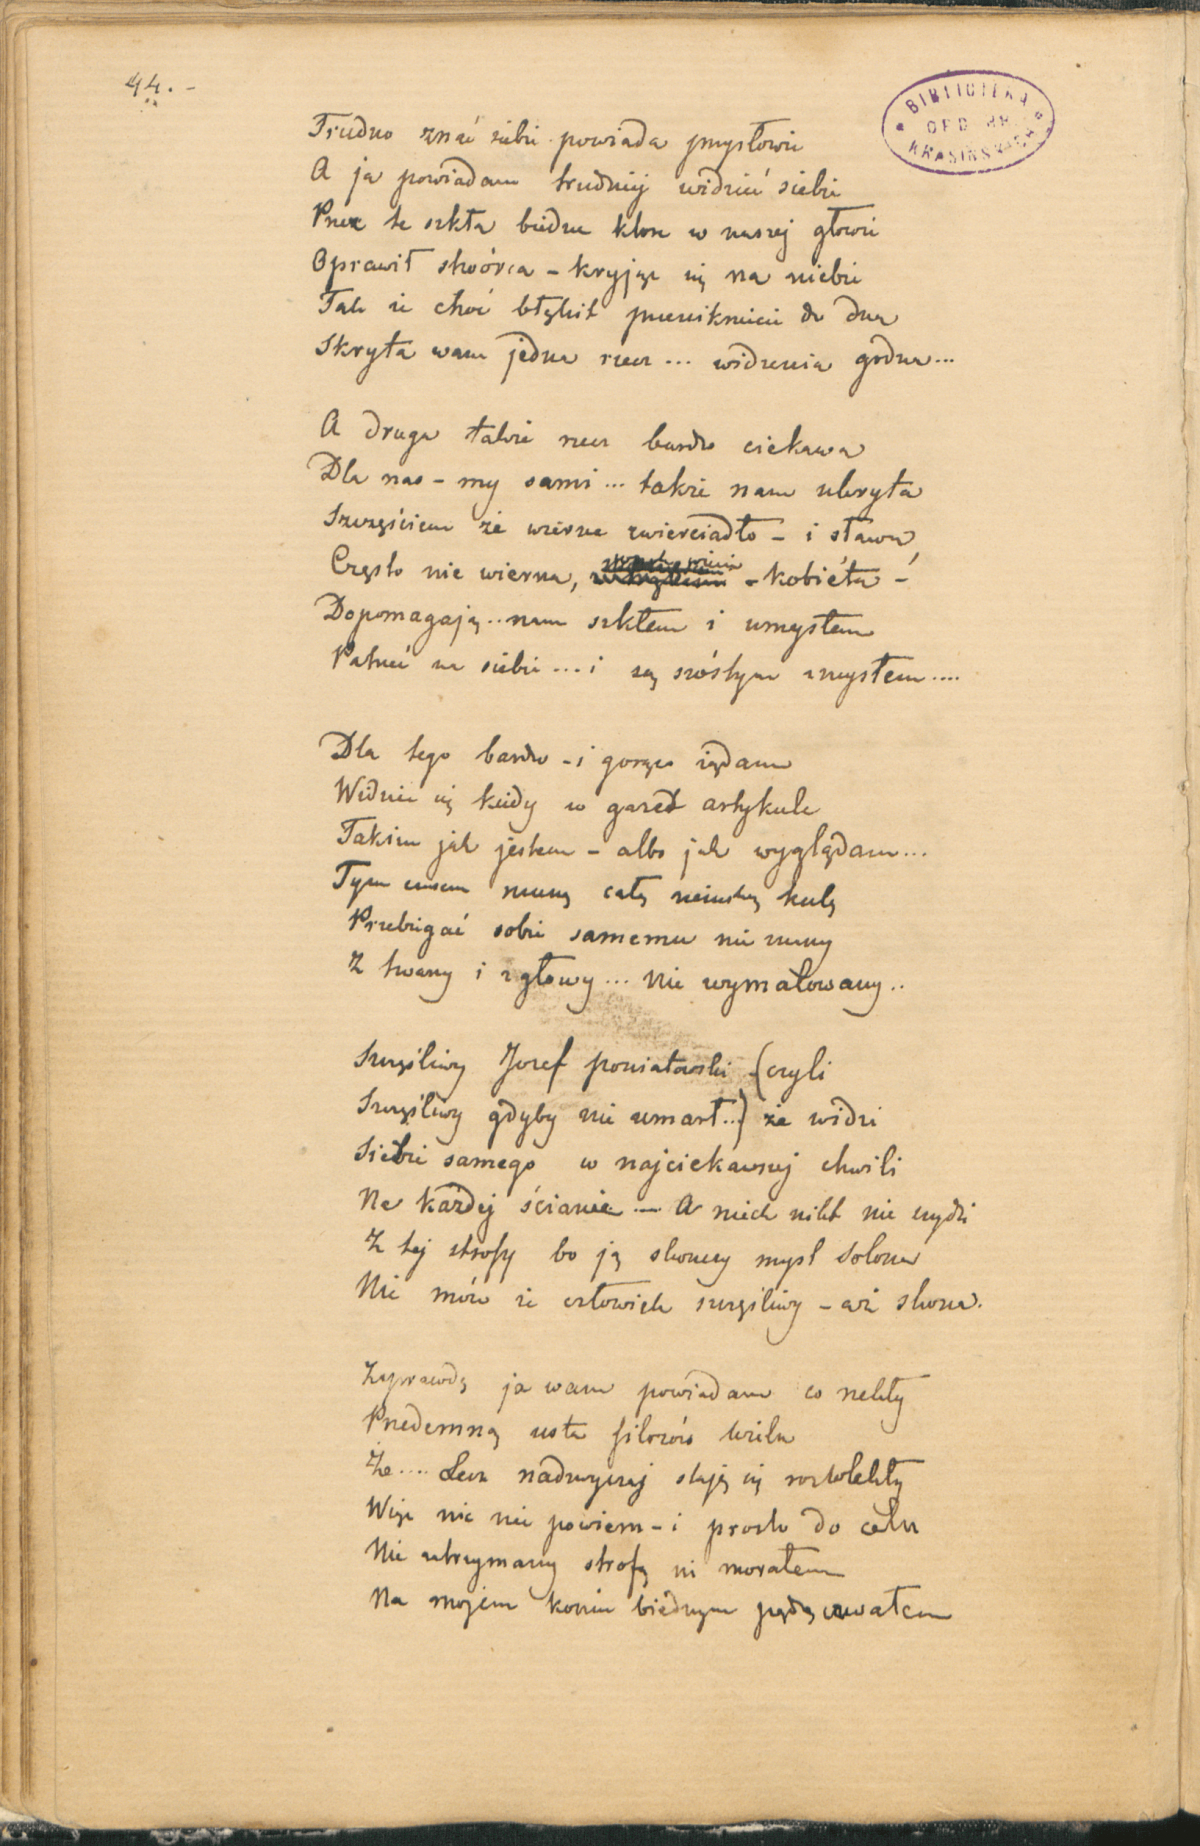 44.-
BIBLIOTEKA
ORD. HR.
KRASIŃSKICH
Trudno znać siebie powiada przysłowie
A ja powiadam trudniej widzieć siebie
Przez te szkła biedne które w naszej głowie
Oprawił stwórca – kryjąc się na niebie
Tak że choć błękit przenikniecie do dna
Skryta wam jedna rzecz ... widzenia godna...
A druga także rzecz bardzo ciekawa
Dla nas – my sami ... także nam ukryta
Szczęściem że wierne zwierciadło – i sława
Często nie wierna, – kobiéta –
Dopomagają .. nam szkłem i umysłem
Patrzéć na siebie ... i są szóstym zmysłem ....
Dla tego bardzo – i gorąco żądam
Widzieć się kiedy w gazet artykule
Takim jak jestem – albo jak wyglądam ...
Tym czasem muszę całą ziemską kulę
Przebiegać sobie samemu nie znany
Z twarzy i z głowy ... Nie wymalowany ..
Szczęśliwy Jozef poniatowski (czyli
Szczęśliwy gdyby nie umarł...) że widzi
Siebie samego w najciekawszej chwili
Na każdej ścianie — A niech nikt nie szydzi
Z tej strofy bo ją skończy myśl Solona
Nie mów że człowiek szczęśliwy – aż skona.
Zaprawdę ja wam powiadam co rzekły
Przedemną usta filozofów wielu
Że .... Lecz nadzwyczaj staję się rozwlekły
Więc nic nie powiem – i prosto do celu
Nie utrzymany strofą ni morałem
Na mojem koniu biednym pędzę cwałem